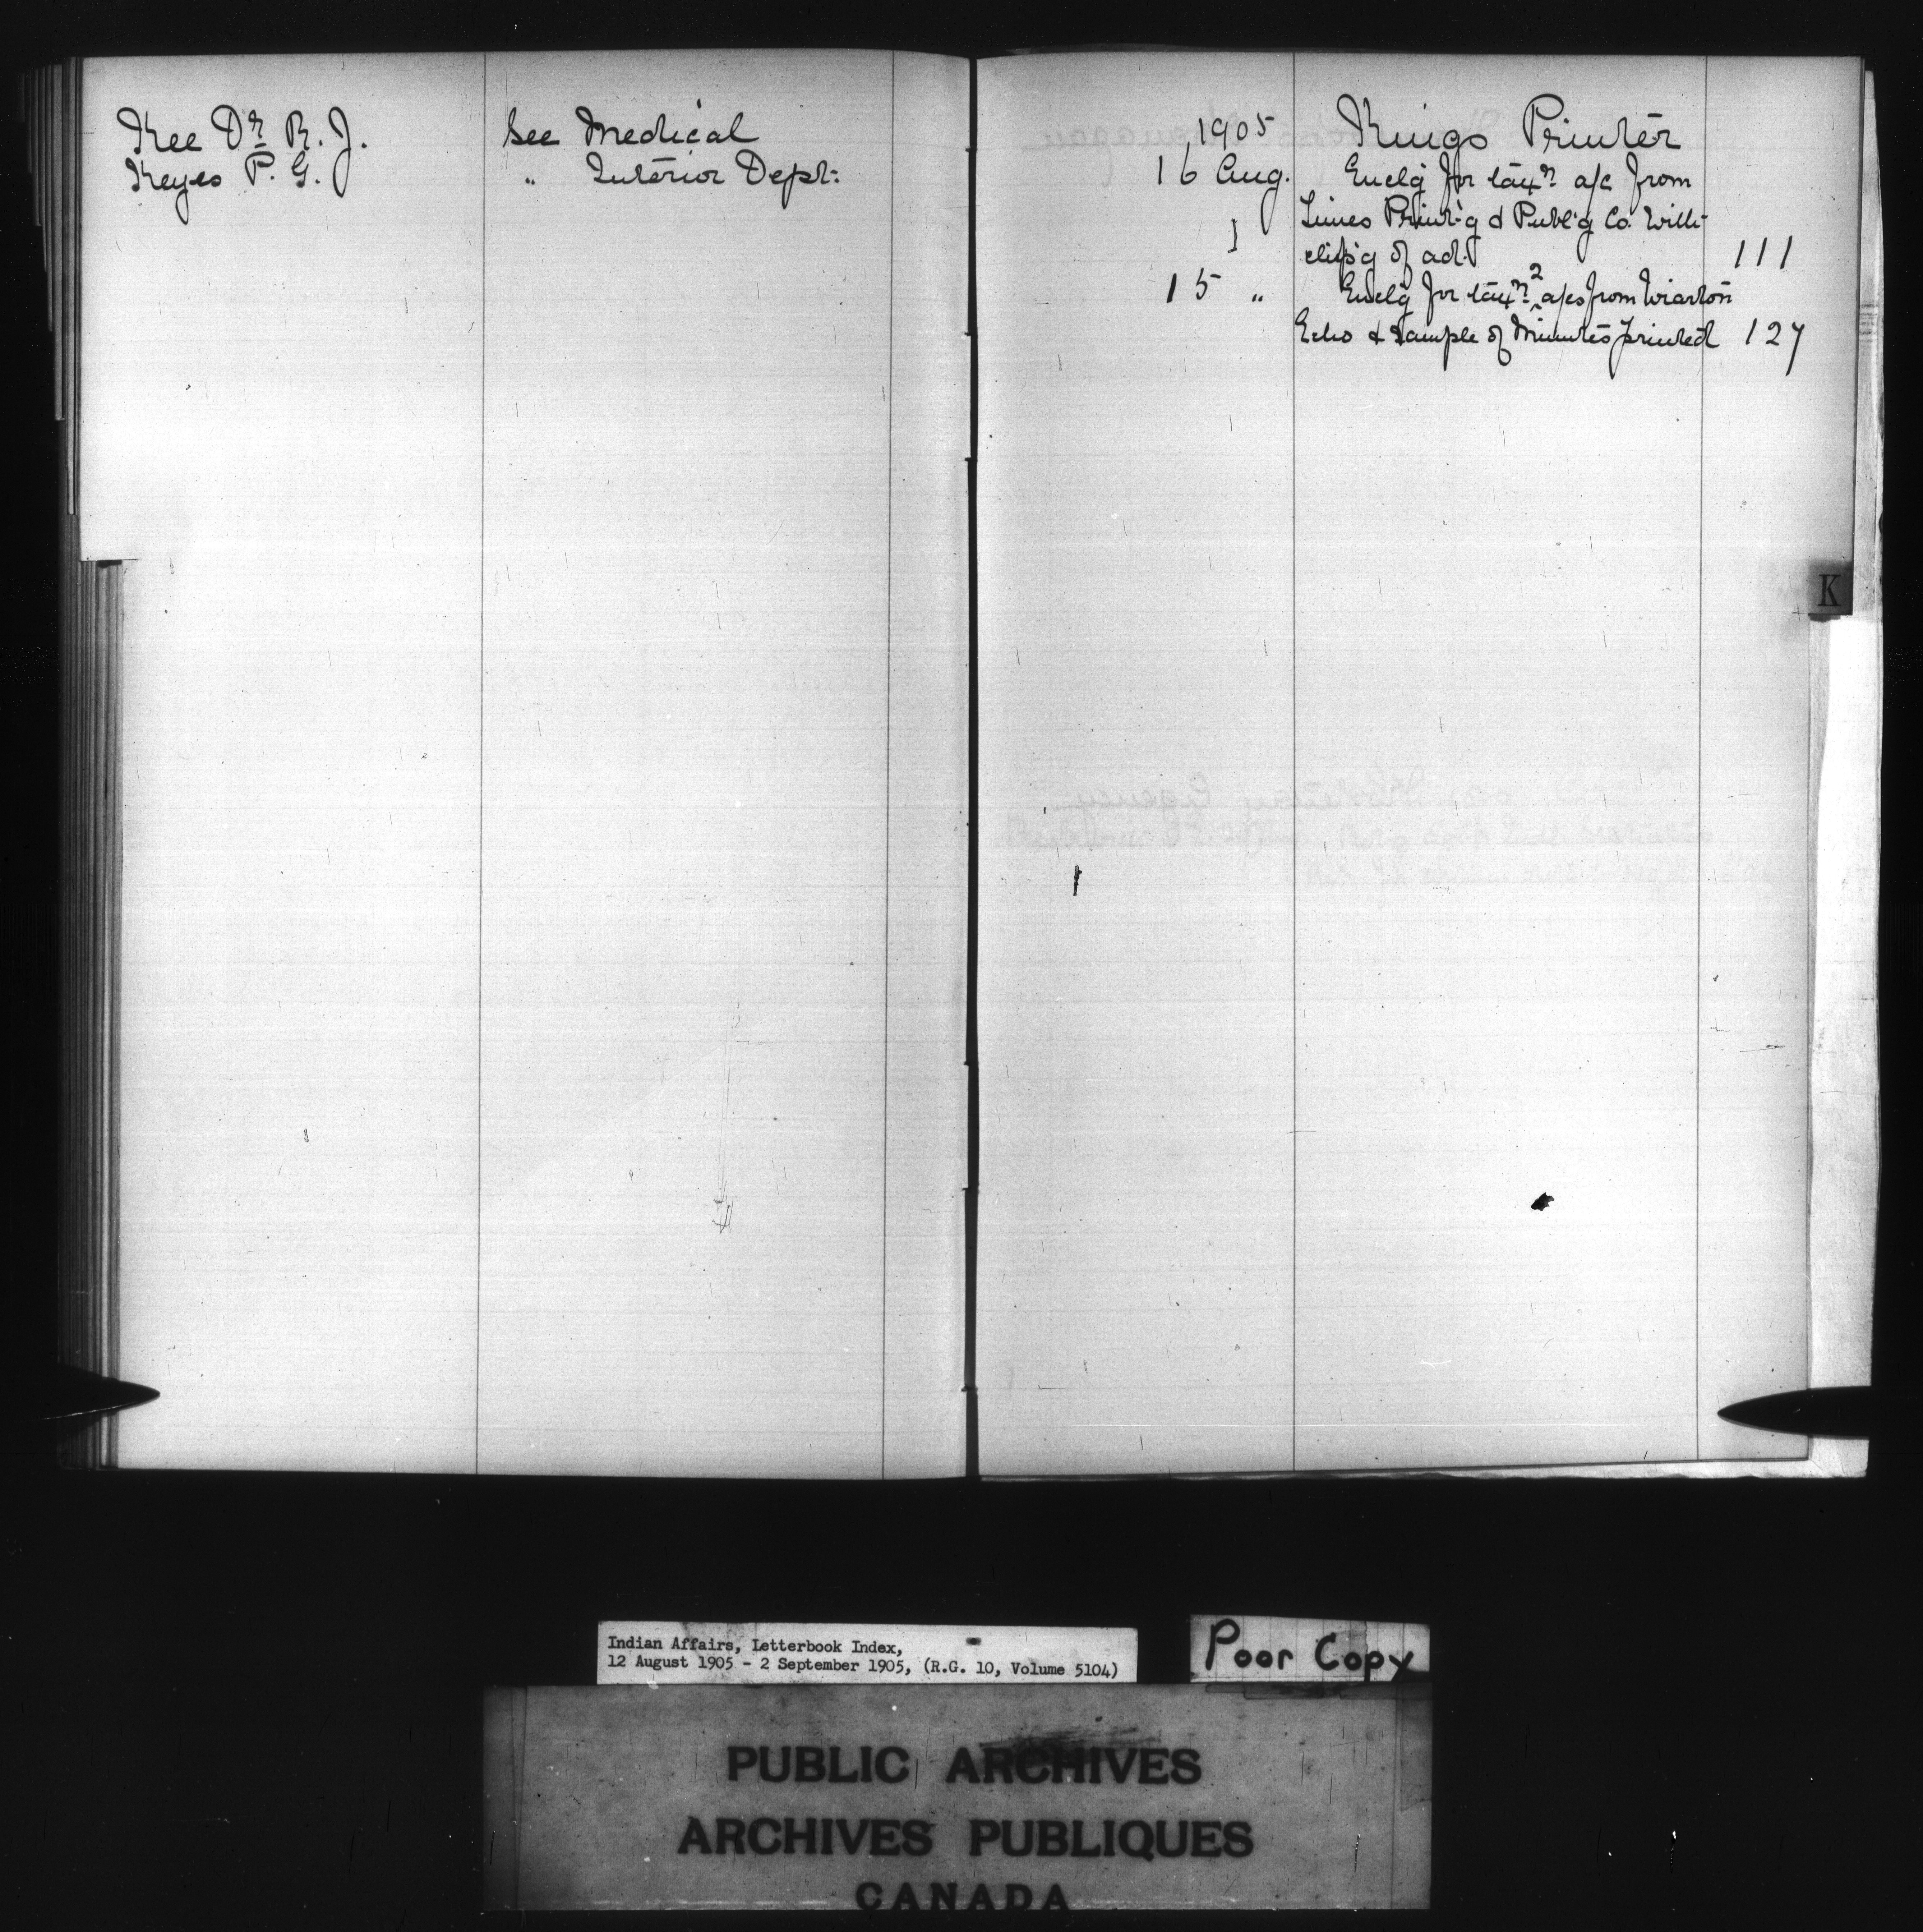 Kee Dr. R. J. See Medical
Keyes P. G. " Interior Dept.
1905 Kings Printer
16 Aug. Enclg for taxn a/c from
Times Print'g & Publ'g Co. with
clip'g of adt. 111
15 " Enclg for taxn 2 a/cs from Wiarton
Echo & sample of Minutes printed 127
K
Indian Affairs, Letterbook Index,
12 August 1905 - 2 September 1905, (R.G. 10, Volume 5104)
Poor Copy
PUBLIC ARCHIVES
ARCHIVES PUBLIQUES
CANADA